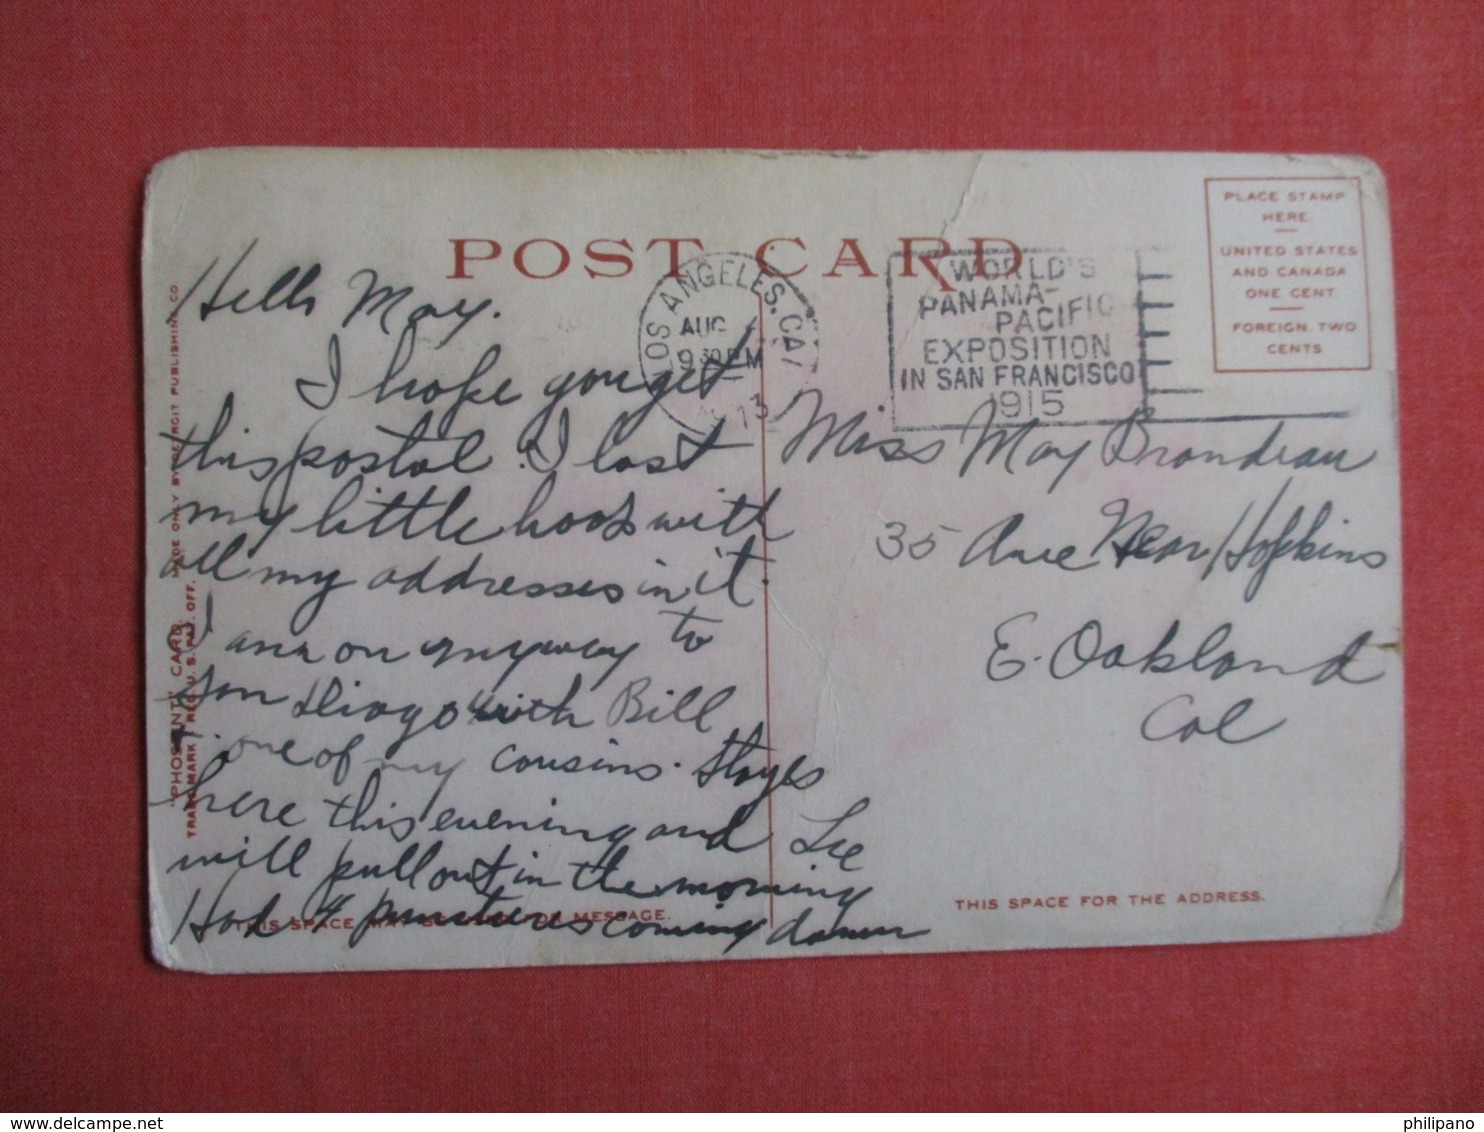 POST CARD
PLACE STAMP
HERE.
UNITED STATES
AND CANADA
ONE CENT
FOREIGN, TWO
CENTS
LOS ANGELES, CAL
AUG
9 30 PM
1913
WORLD'S
PANAMA-
PACIFIC
EXPOSITION
IN SAN FRANCISCO
1915
Hello May.
I hope you get
this postal. I lost
my little book with
all my addresses in it.
I am on my way to
San Diago with Bill
one of my cousins. Stayes
here this evening and
will pull out in the morning
Had 4 punctures coming down
Miss May Brondeau
35 Ave Near Hopkins
E. Oakland
Cal
"PHOSTINT" CARD. MADE ONLY BY DETROIT PUBLISHING CO.
TRADEMARK REG. U.S. PAT. OFF.
THIS SPACE MAY BE USED FOR MESSAGE.
THIS SPACE FOR THE ADDRESS.
philipano